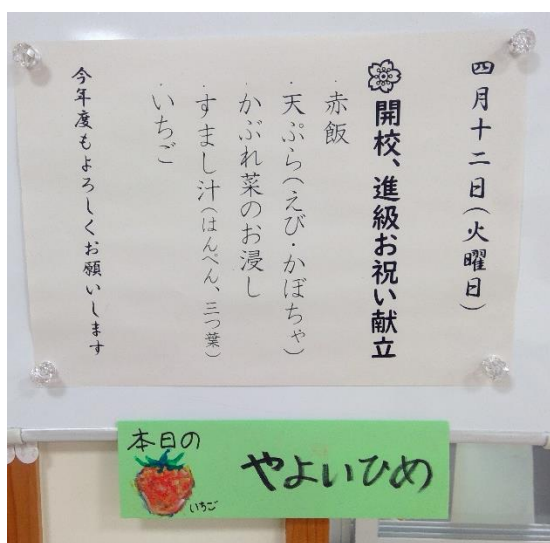 四月十二日(火曜日)
開校、進級お祝い献立
・赤飯
・天ぷら(えび・かぼちゃ)
・かぶれ菜のお浸し
・すまし汁(はんぺん、三つ葉)
・いちご
今年度もよろしくお願いします
本日の
いちご
やよいひめ